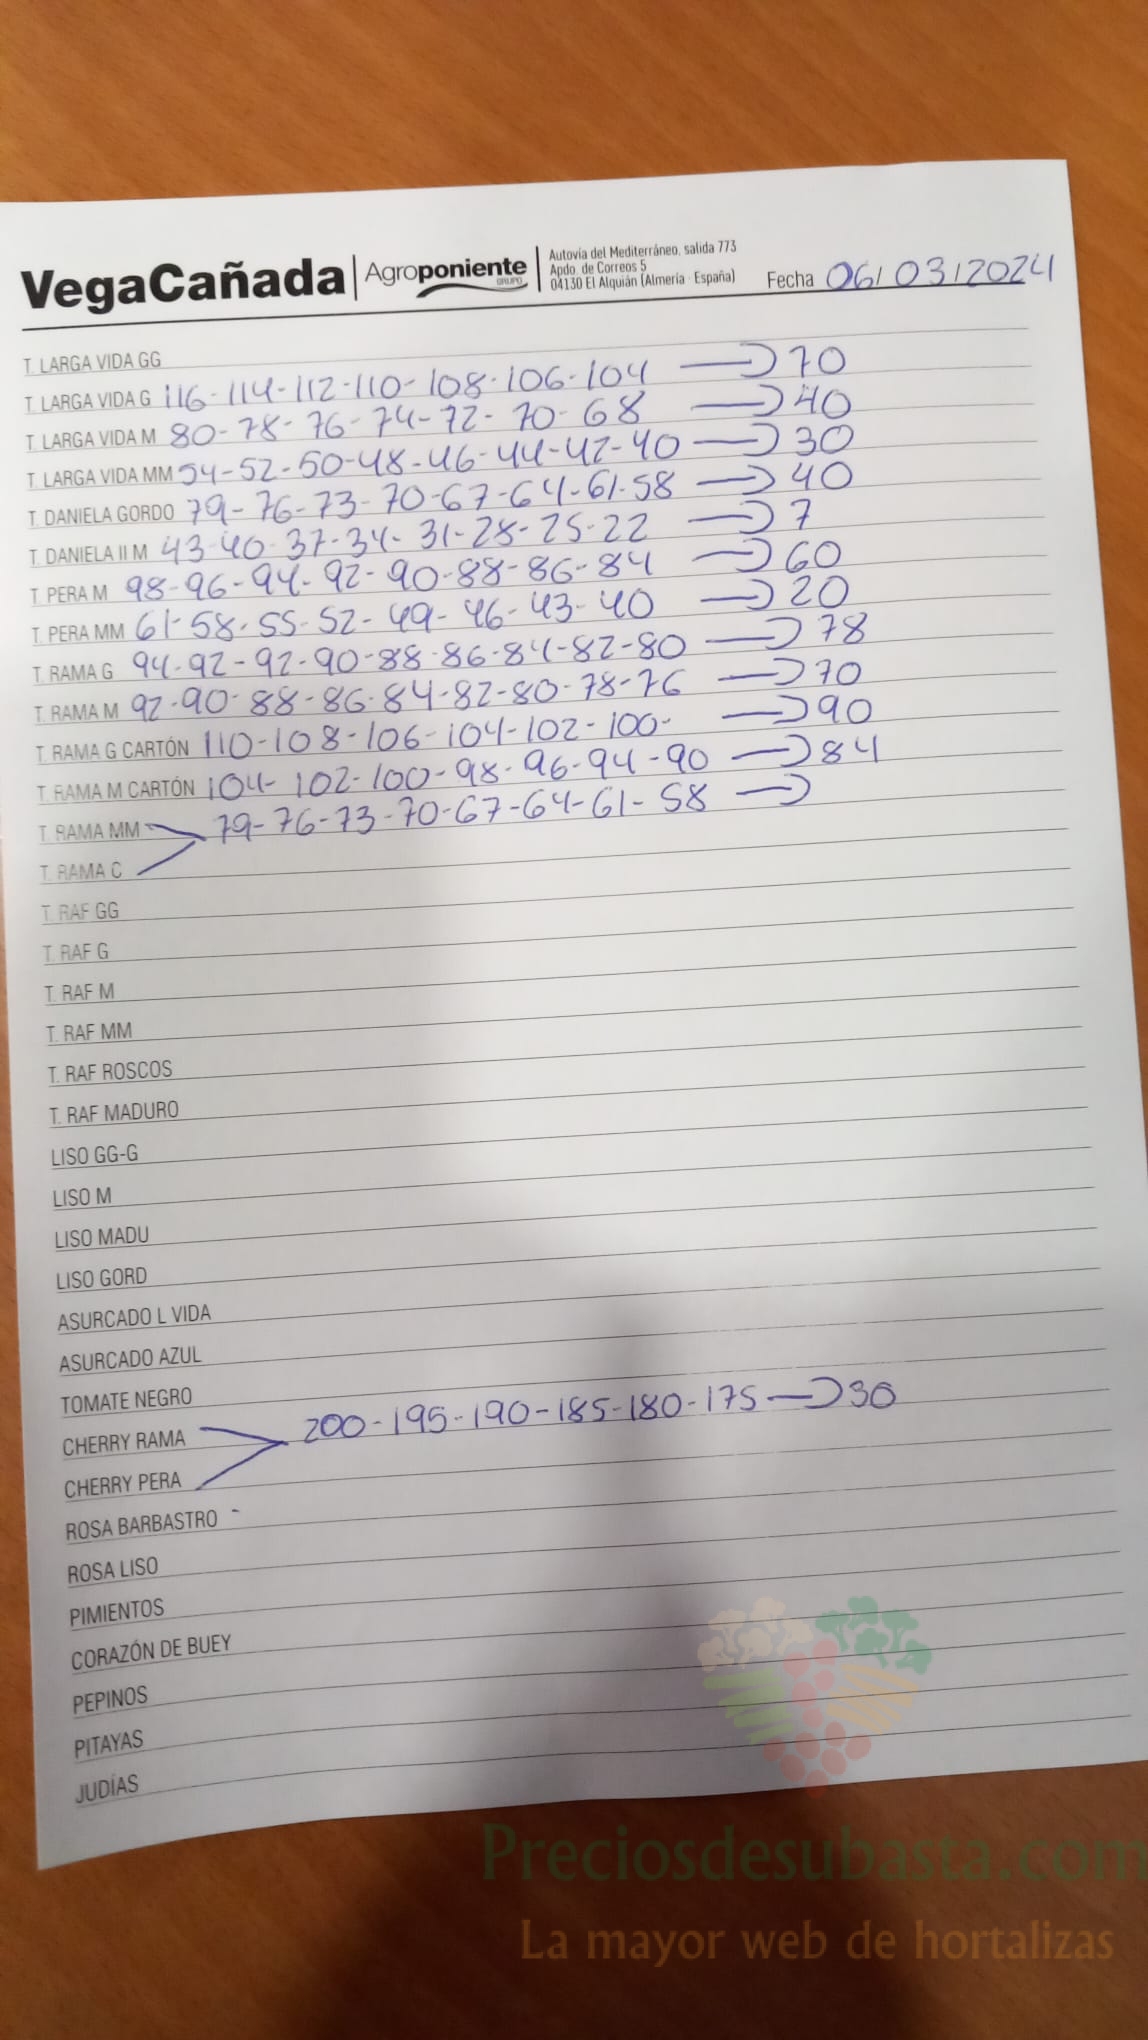 VegaCañada Agroponiente GRUPO
Autovía del Mediterráneo, salida 773
Apdo. de Correos 5
04130 El Alquián (Almería - España)
Fecha 06/03/2024
T. LARGA VIDA GG
T. LARGA VIDA G 116-114-112-110-108-106-104 → 70
T. LARGA VIDA M 80-78-76-74-72-70-68 → 40
T. LARGA VIDA MM 54-52-50-48-46-44-42-40 → 30
T. DANIELA GORDO 79-76-73-70-67-64-61-58 → 40
T. DANIELA II M 43-40-37-34-31-28-25-22 → 7
T. PERA M 98-96-94-92-90-88-86-84 → 60
T. PERA MM 61-58-55-52-49-46-43-40 → 20
T. RAMA G 94-92-92-90-88-86-84-82-80 → 78
T. RAMA M 92-90-88-86-84-82-80-78-76 → 70
T. RAMA G CARTÓN 110-108-106-104-102-100- → 90
T. RAMA M CARTÓN 104-102-100-98-96-94-90 → 84
T. RAMA MM 79-76-73-70-67-64-61-58 →
T. RAMA C
T. RAF GG
T. RAF G
T. RAF M
T. RAF MM
T. RAF ROSCOS
T. RAF MADURO
LISO GG-G
LISO M
LISO MADU
LISO GORD
ASURCADO L VIDA
ASURCADO AZUL
TOMATE NEGRO
CHERRY RAMA 200-195-190-185-180-175 → 30
CHERRY PERA
ROSA BARBASTRO -
ROSA LISO
PIMIENTOS
CORAZÓN DE BUEY
PEPINOS
PITAYAS
JUDÍAS
Preciosdesubasta.com
La mayor web de hortalizas